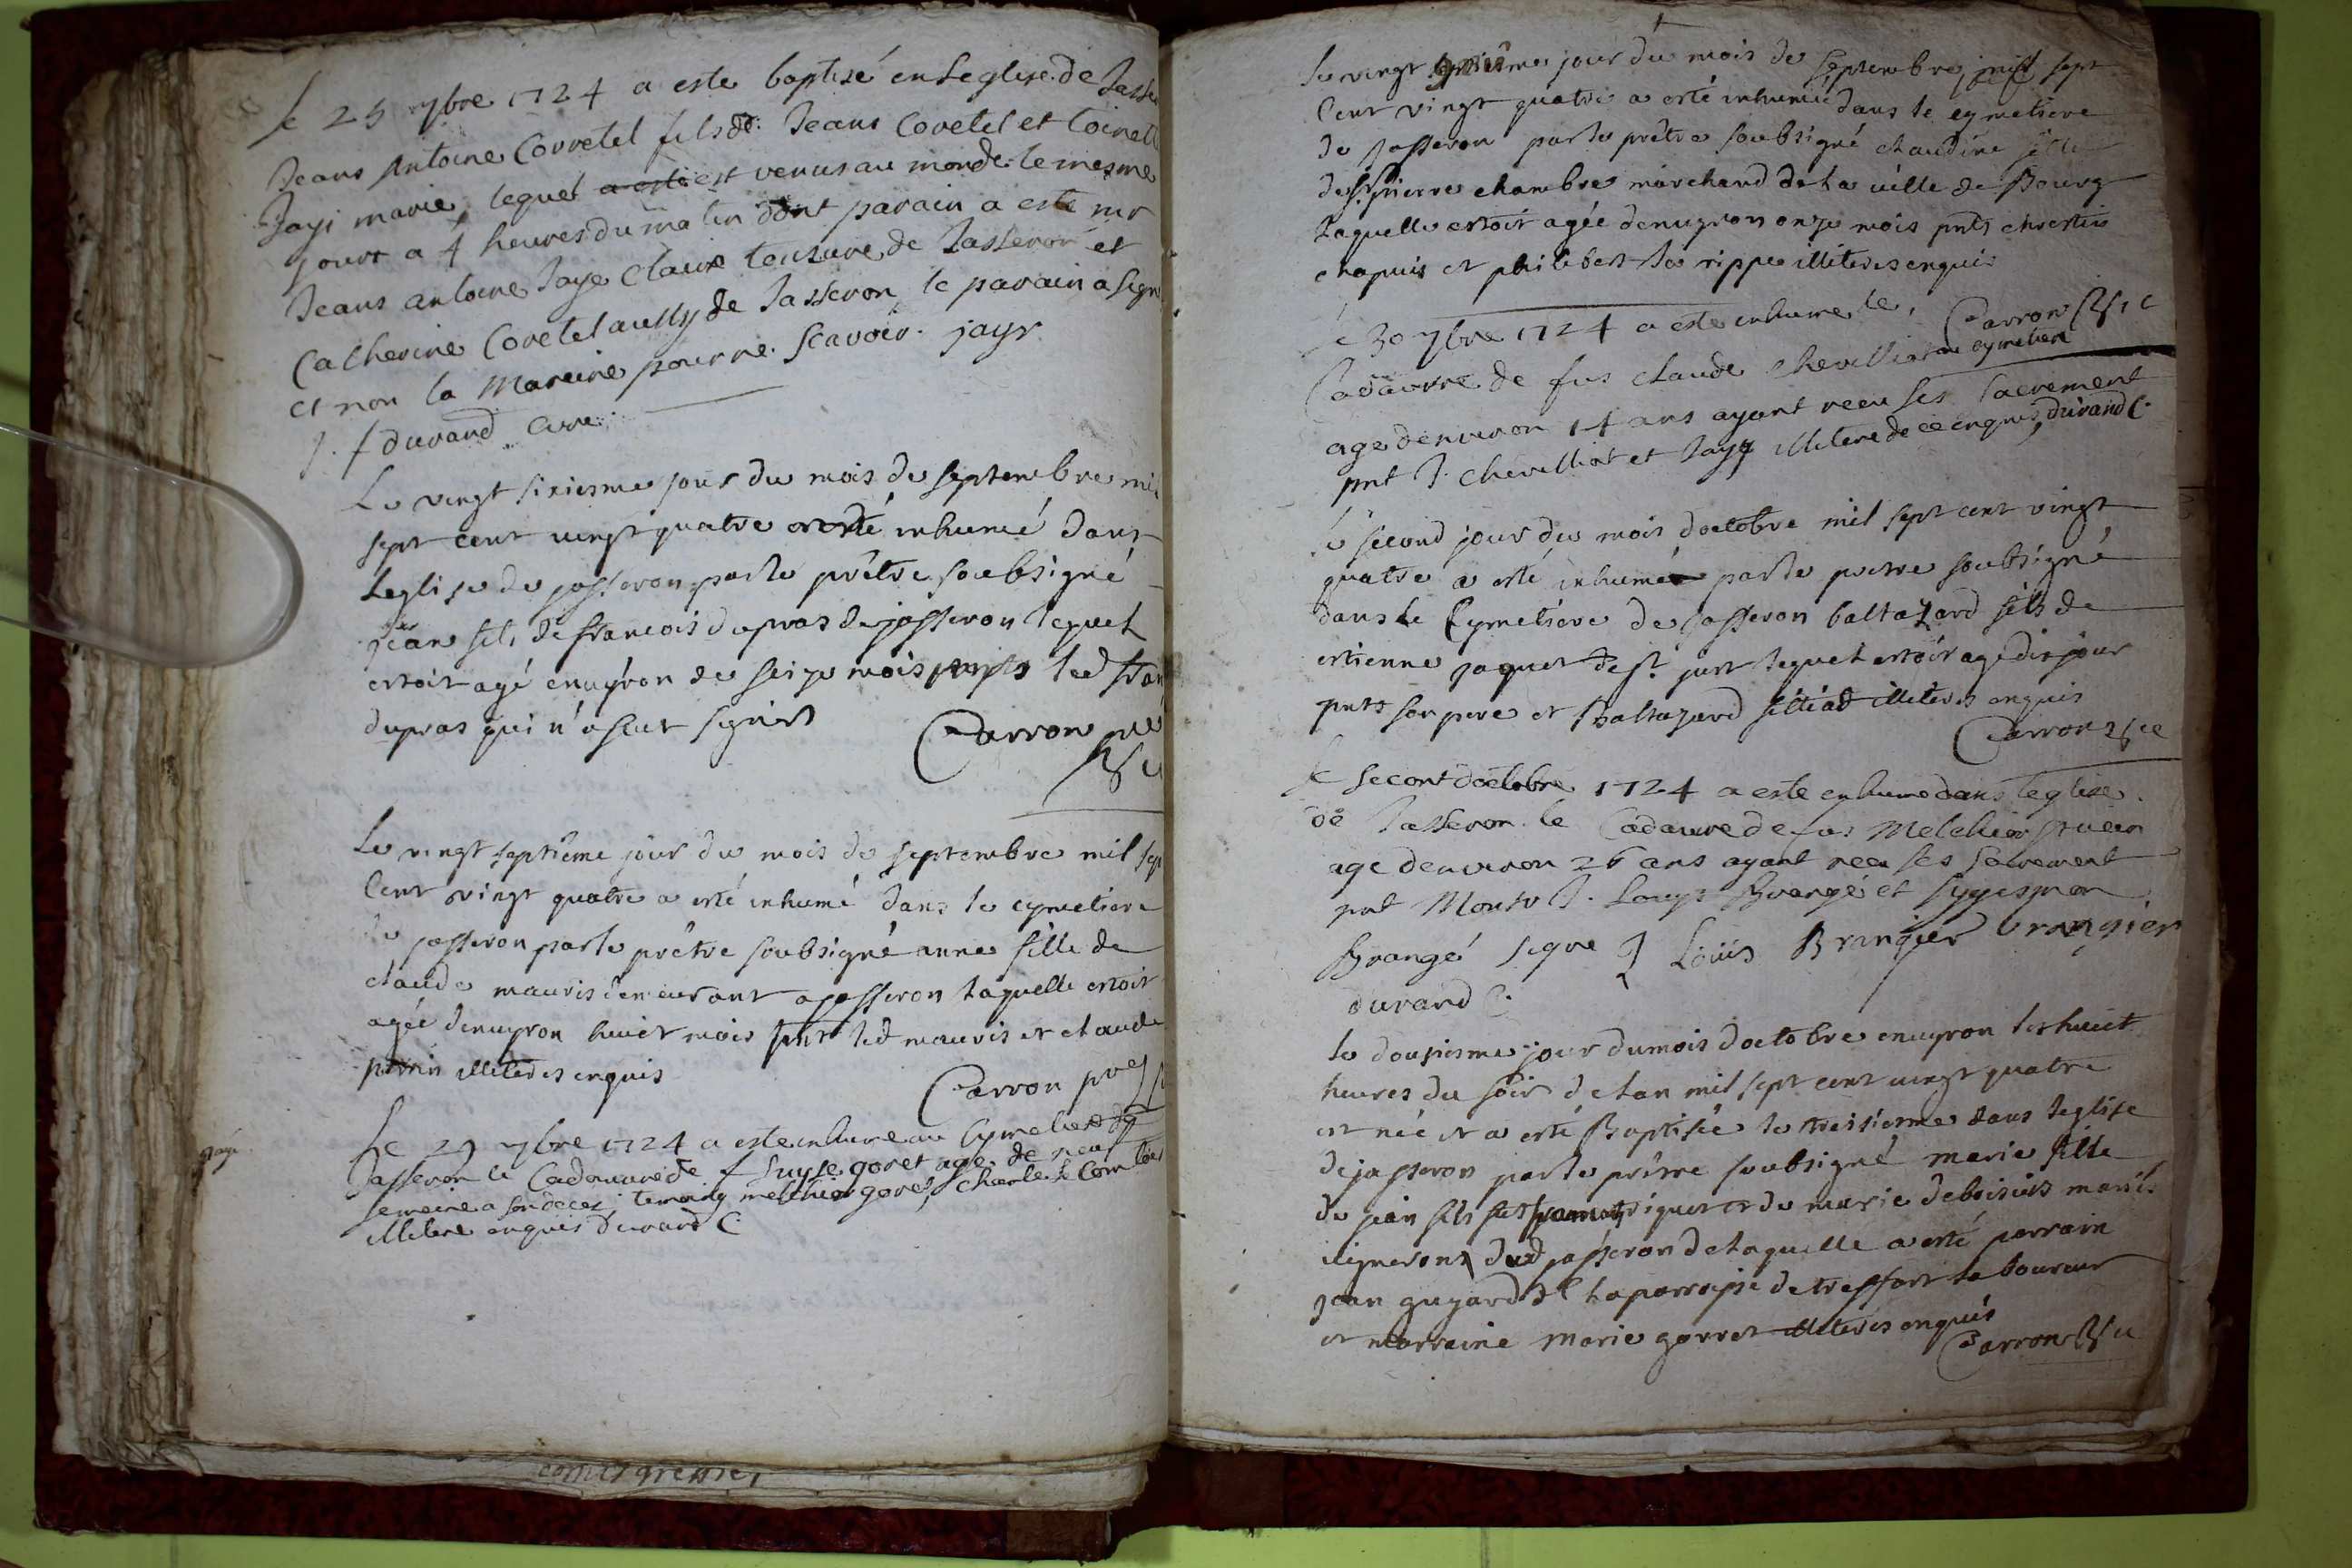 Le 25 7bre 1724 a este baptisé en Leglise de Jasse
Jeans Antoine Corretel fils de Jeans Coretel et
Jayi marie, lequel a este est venus au monde le mesme
jourt a 4 heures du matin dont parain a este mr
Jeans antoine Jaye Claire tonsure de Jasseron et
Catherine Coretel aussy de Jasseron, le parain a signe
et non la Mareine pour ne scavoir. jayr
J. f durand cure
Le vingt sixiesme jour du mois de septembre mil
sept cent vingt quatre a esté inhumé dans
Leglise de jasseron par le prêtre soubsigné
jean fils de francois dupras de jasseron lequel
estoit agé enuyron de seize mois led fran
dupras qui n'a sceut signer
Carron pre
Le vingt septième jour du mois de septembre mil sept
Cent vingt quatre a esté inhumé dans le cymetiere
de jasseron par le prêtre soubsigné anne fille de
claude mauris demeurant a jasseron laquelle estoit
agée denuyron huict mois pnt led mauris et claude
perrin illiteres enquis
Carron pre
Le 29 7bre 1724 a este inhume au Cymetiere de
Jasseron le Cadauure de f Suyse goret age de neuf
semeine a son deces, temoing melchior goret, charle
illitere enquis durand C.
Le vingt jour du mois de septembre mil sept
Cent vingt quatre a esté inhumée dans le cymetiere
de Jasseron par le prêtre soubsigné claudine fille
de Sr pierre chambre marchand de la uille de Bourg
laquelle estoit agée denuyron onze mois pnts chrestin
chapuis et philibert la rippe illiteres enquis
Carron
Le 30 7bre 1724 a este inhume le
Cadauure de fus claude chevilliat au cymetiere
age denuiron 14 ans ayant receu ses sacrement
pnt J. chevilliat et Jayr illitere de ce enquis, durand C.
Le second jour du mois doctobre mil sept cent vingt
quatre a esté inhumé par le prêtre soubsigné
dans le Cymetiere de Jasseron baltazard fils de
estienne jaquet de St just lequel estoit agé dix jour
pnts son pere et Baltazard illiteres enquis
Carron
Le second doctobre 1724 a este enhume dans leglise
de Jasseron le Cadauure de fus Melchior
age denuiron 26 ans ayant receu ses sacrement
pnt Monsr J. Louys Brangé et sygismon
Brangé signe J Loüis Brangier brangier
durand C.
Le dousiesme jour du mois doctobre enuyron les huict
heures du soir de lan mil sept cent vingt quatre
est née et a esté Baptisée le treisiesme dans leglise
de jasseron par le prêtre soubsigné marie fille
de jean fils et de marie deboisuis mariés
uignerons dud jasseron de laquelle a esté parrain
jean guyard de la parroisse de treffort laboureur
et marraine Marie gorret illiteres enquis
Carron